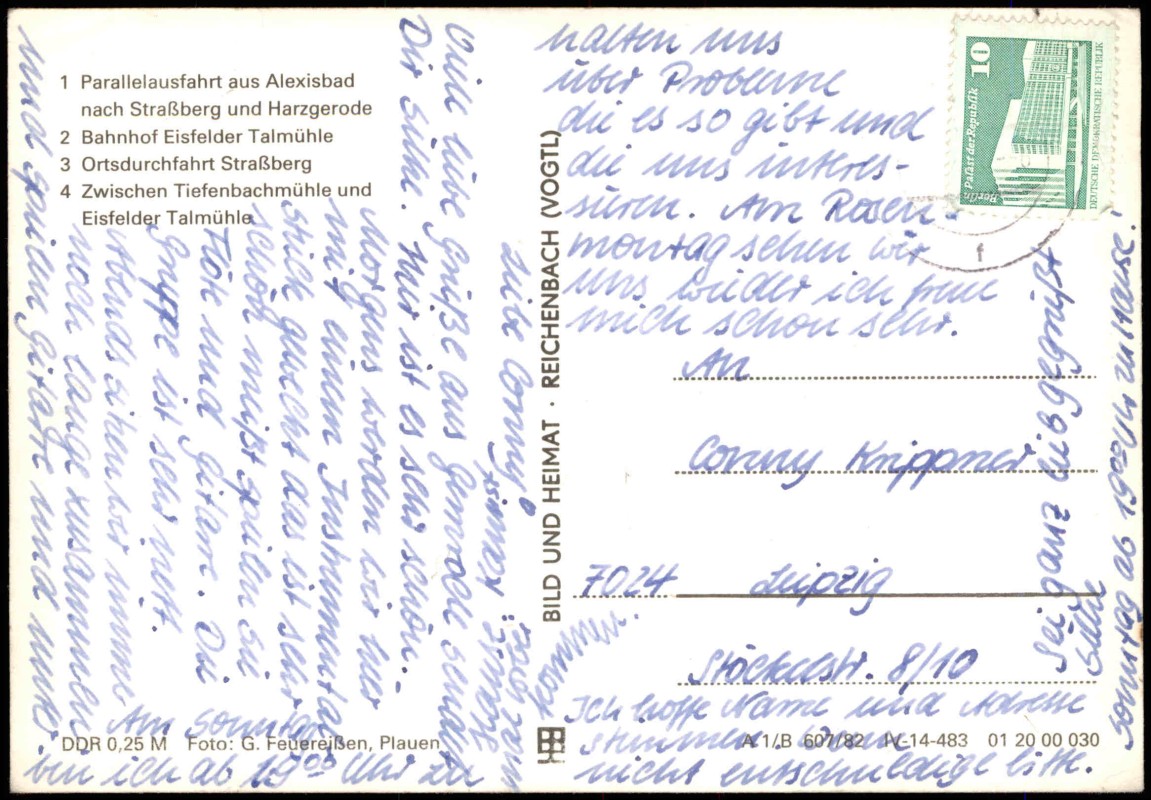 1 Parallelausfahrt aus Alexisbad
nach Straßberg und Harzgerode
2 Bahnhof Eisfelder Talmühle
3 Ortsdurchfahrt Straßberg
4 Zwischen Tiefenbachmühle und
Eisfelder Talmühle
Liebe Conny!
Viele liebe Grüße aus Gernrode sendet
Dir Silke. Hier ist es sehr schön.
Morgens werden wir hier
mit einem Instrumental
stück geweckt das ist sehr
schön meist spielen sie
Flöte und Gitarre. Die
Gruppe ist sehr nett.
Abends sitzen wir immer
noch lange zusammen
und spielen Gitarre und unter
halten uns
über Probleme
die es so gibt und
die uns interes-
sieren. Am Rosen-
montag sehen wir
uns wieder ich freue
mich schon sehr.
Sei ganz lieb gegrüßt
Silke
Am Sonntag
bin ich ab 19 00 Uhr zu
Sonntag ab 19 00 Uhr zu Hause.
kommen.
An
Conny Krippner
7024 Leipzig
Stöckelstr. 8/10
Ich hoffe Name und Adresse
stimmen.
nicht entschuldige bitte.
BILD UND HEIMAT · REICHENBACH (VOGTL)
10
Palast der Republik
Berlin
DEUTSCHE DEMOKRATISCHE REPUBLIK
f
DDR 0,25 M Foto: G. Feuereißen, Plauen
A 1/B 607/82 IV-14-483 01 20 00 030